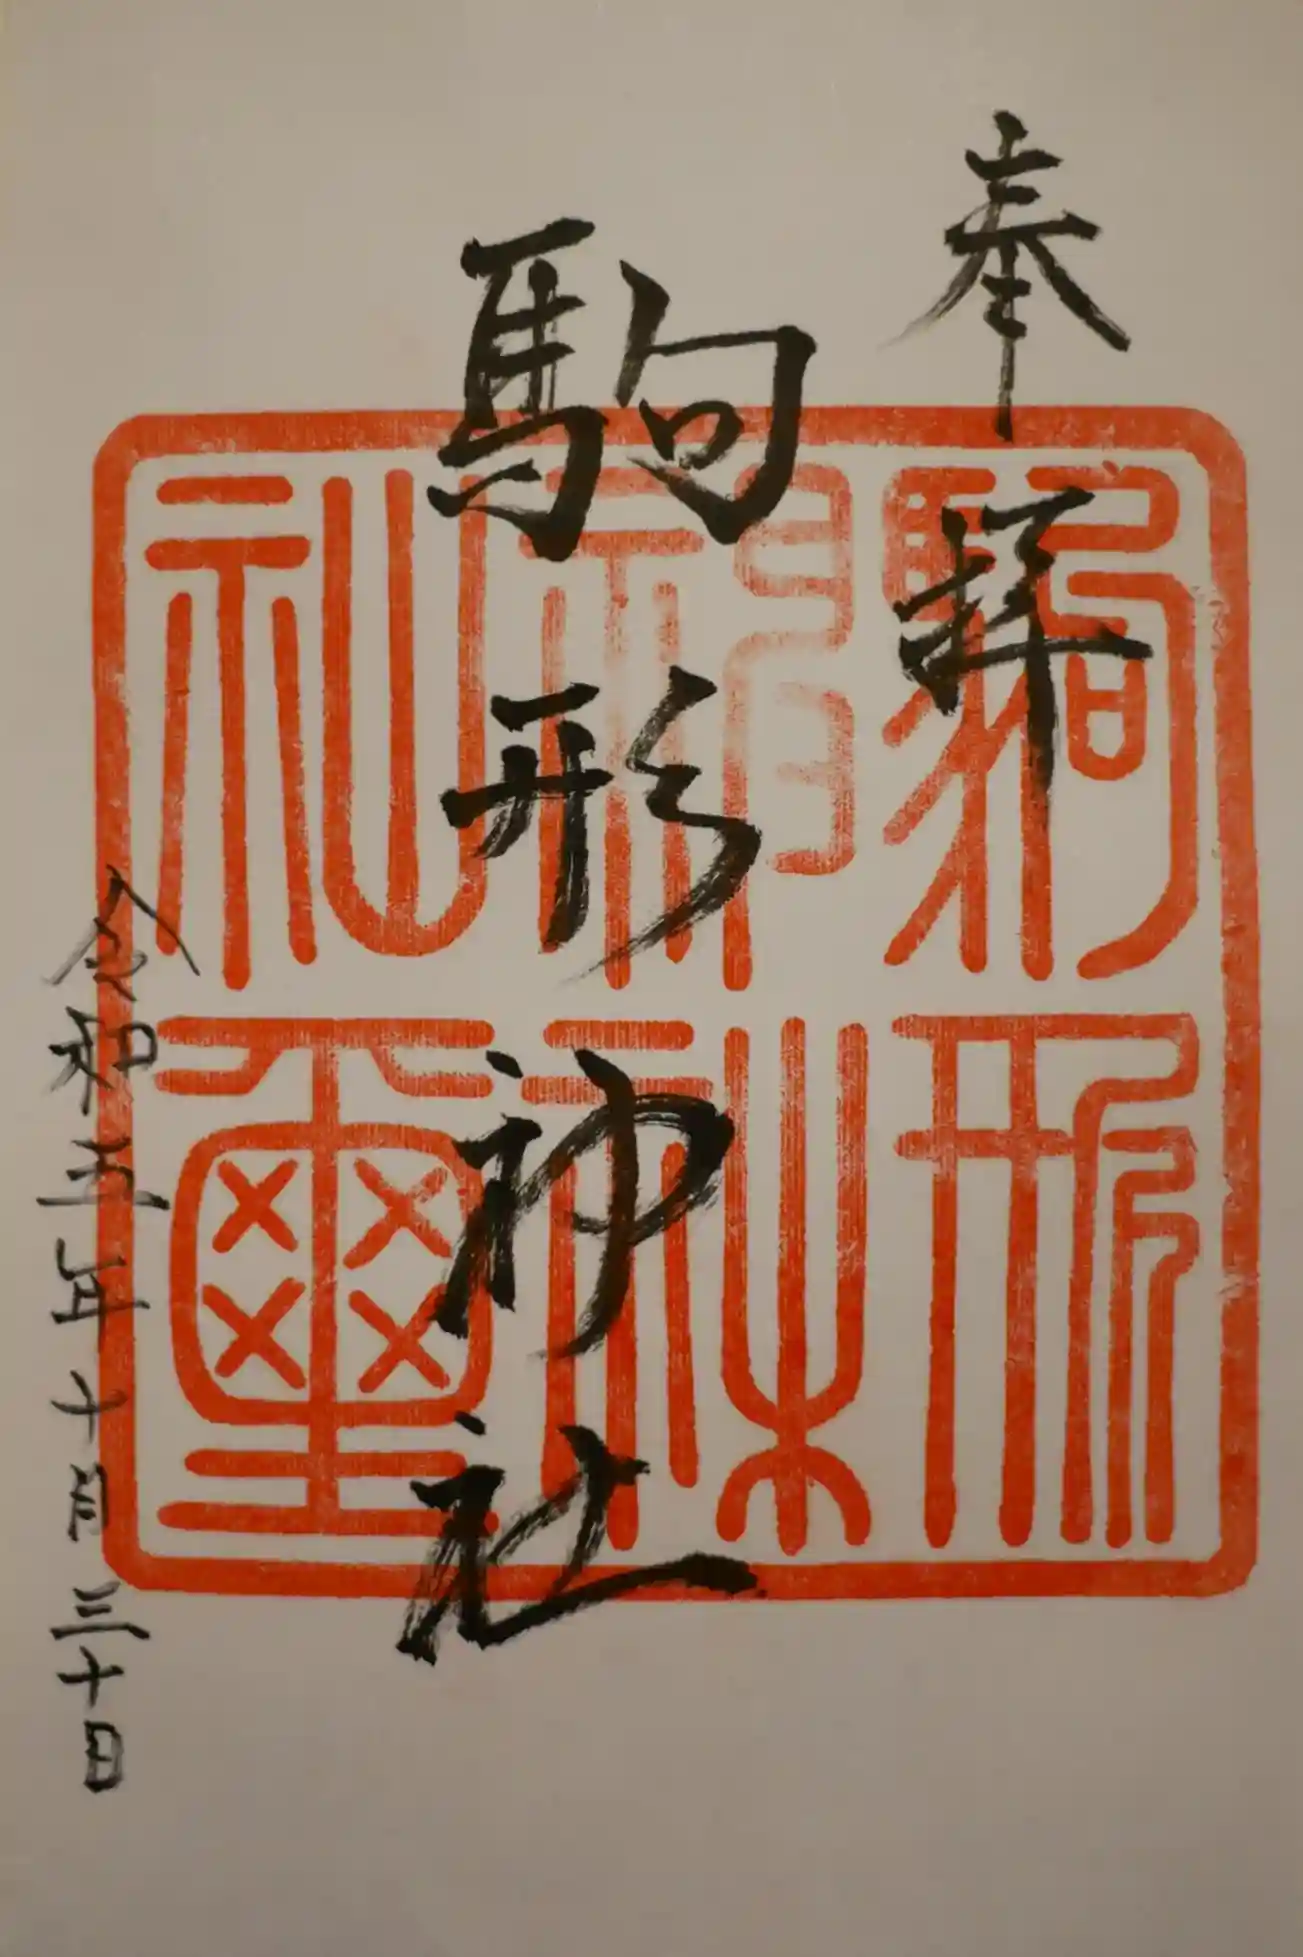 奉拝
駒形神社
令和五年十 三十日
駒形
神
社璽